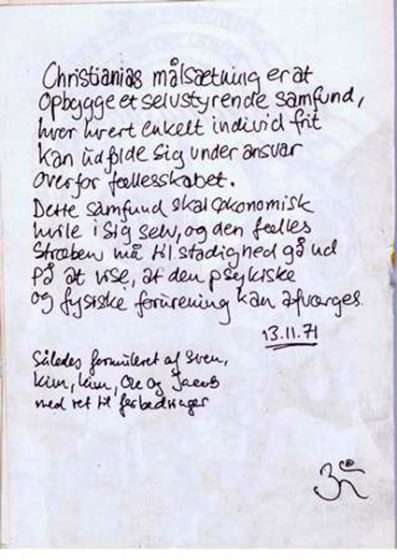 Christianias målsætning er at
Opbygge et selvstyrende samfund,
hvor hvert enkelt individ frit
kan udfolde sig under ansvar
overfor fællesskabet.
Dette samfund skal økonomisk
hvile i sig selv, og den fælles
stræben må til stadighed gå ud
på at vise, at den psykiske
og fysiske forurening kan afværges.
13.11.71
Således formuleret af Sven,
Kim, Kim, Ole og Jacob
med ret til forbedringer
ॐ